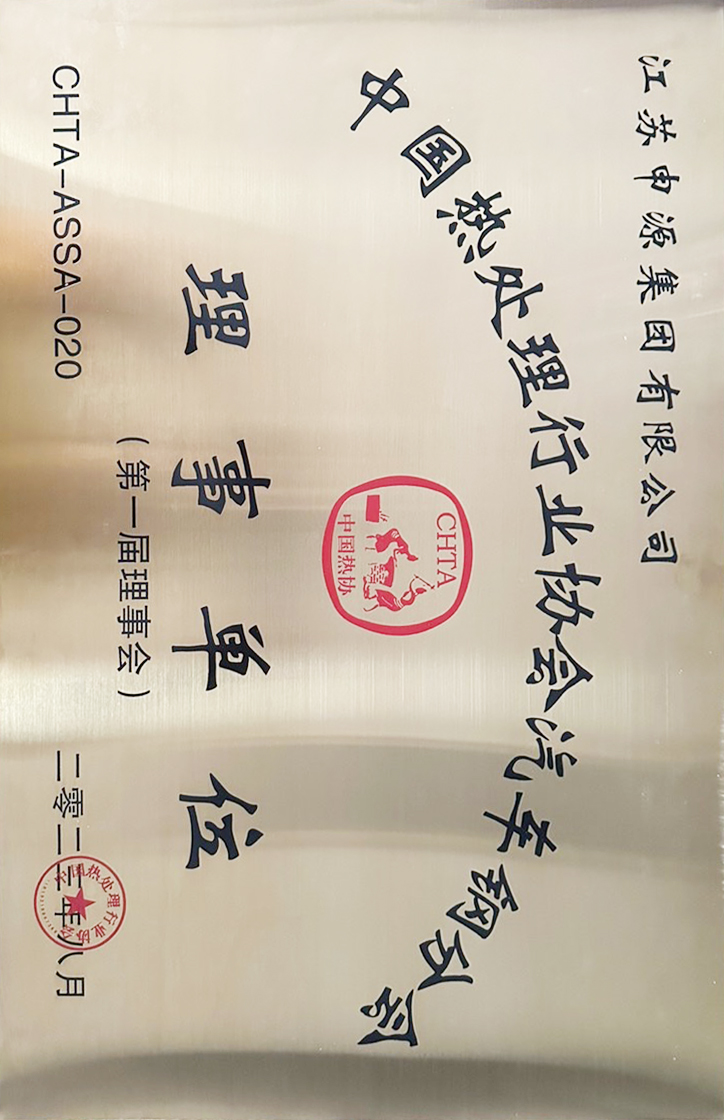 江苏申源集团有限公司
中国热处理行业协会汽车钢
CHTA
中国热协
理事单位
(第一届理事会)
CHTA-ASSA-020
二零二三年八月
中国热处理行业协会